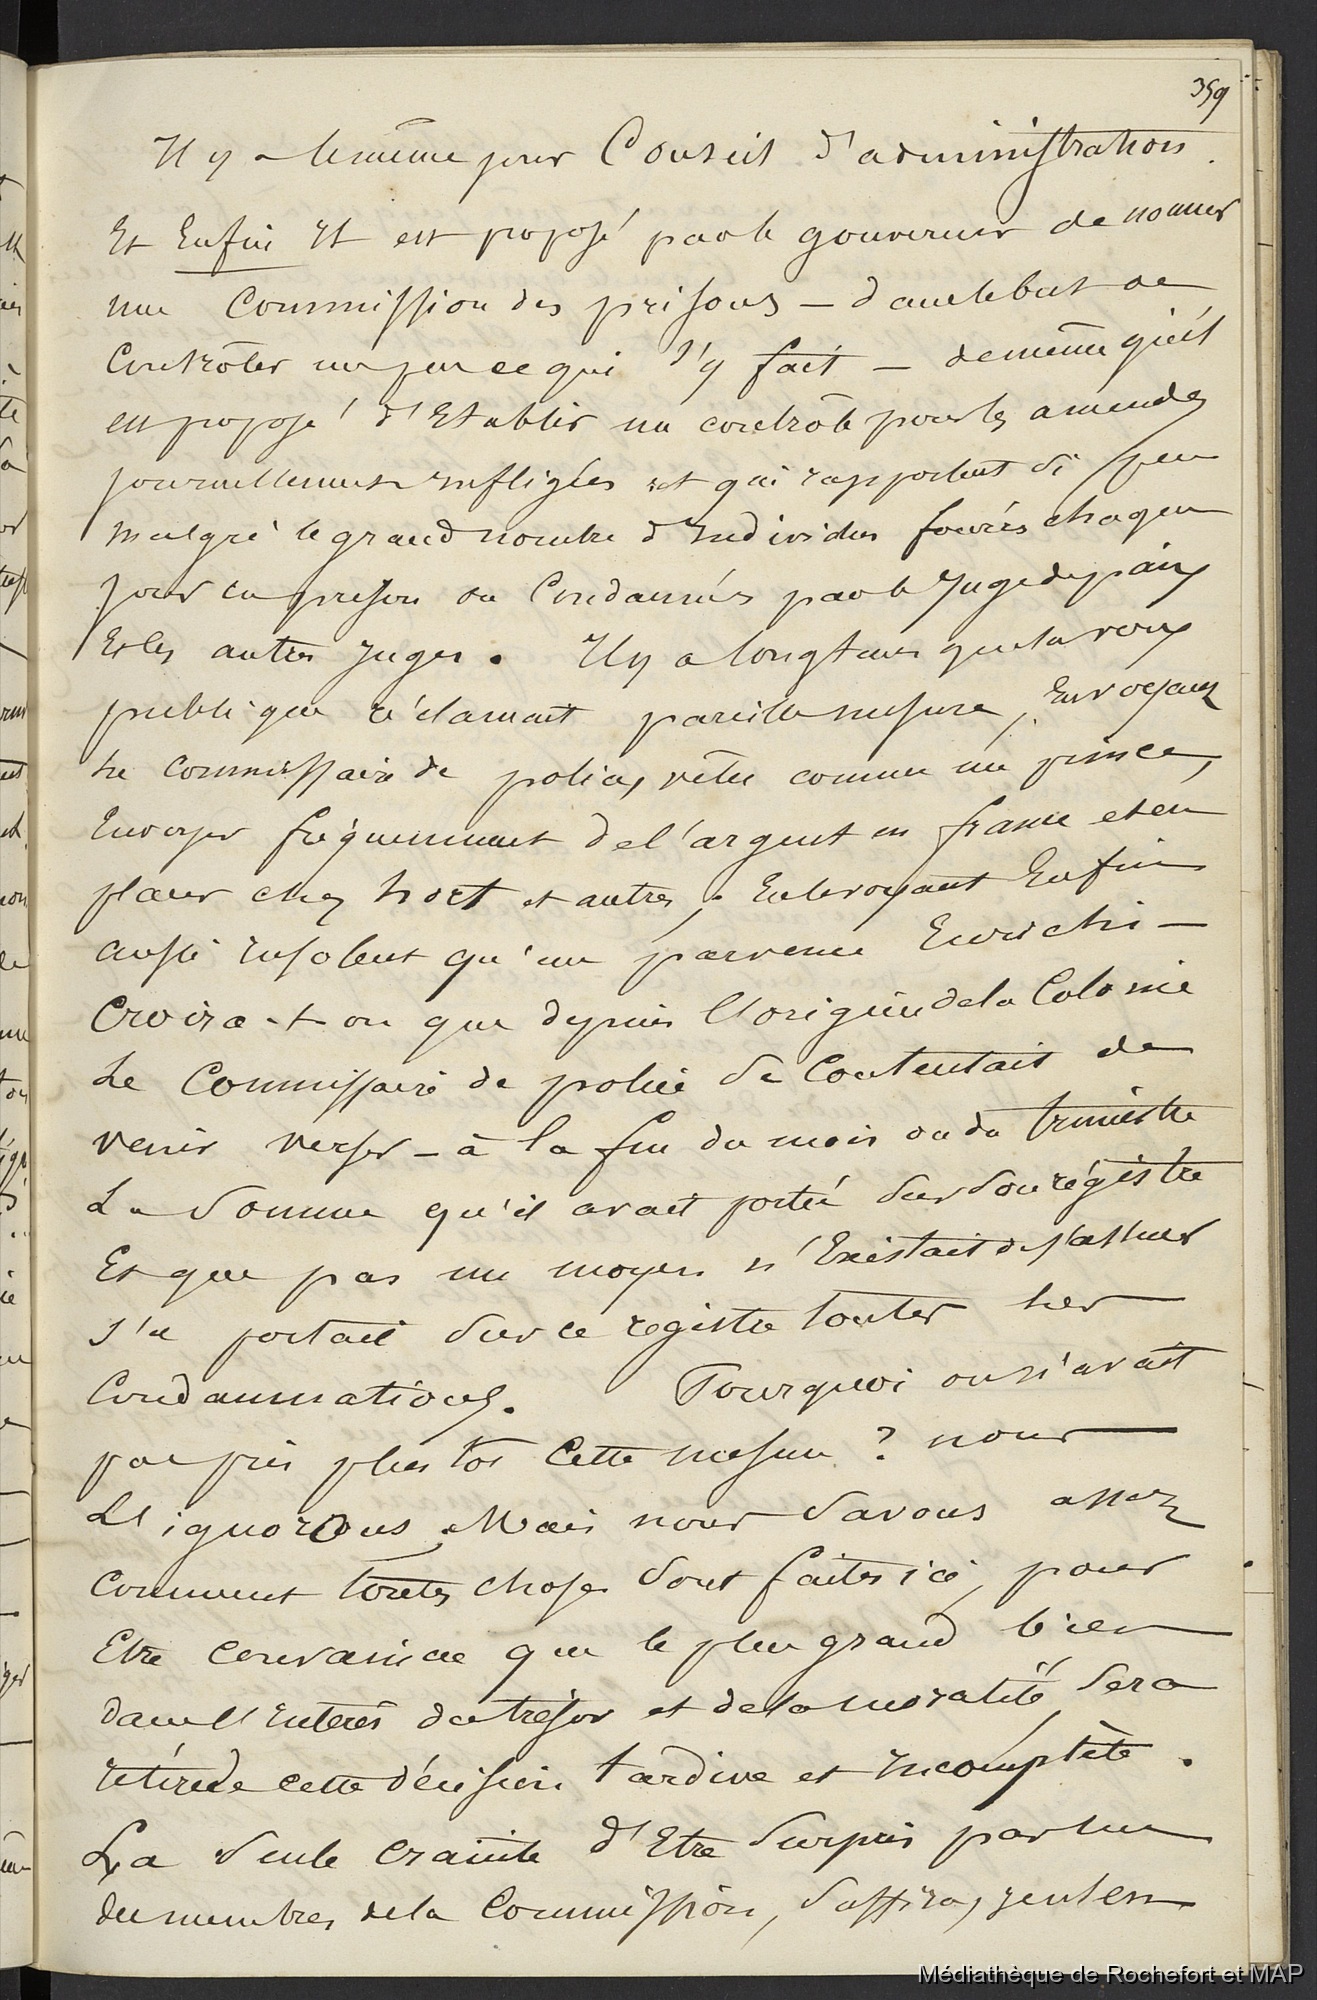 359
Il y a le même jour Conseil d'administration.
Et Enfin Il est proposé par le gouverneur de nommer
une Commission des prisons – dans le but de
Controler un peu ce qui s'y fait – de même qu'il
est proposé d'Etablir un controle pour les amendes
journellement infligées et qui rapportent si peu
malgré le grand nombre d'Individus fourrés chaque
jour en prison ou Condamnés par le Juge de paix
Et les autres juges. Il y a longtems que la voix
publique réclamait pareille mesure, En voyant
Le Commissaire de police, vêtu comme un prince,
Envoyer fréquemment de l'argent en france et en
placer chez hort et autres, En le voyant Enfin
aussi insolent qu'un parvenu Enrichi –
Croira-t-on que depuis l'origine de la Colonie
Le Commissaire de police se Contentait de
venir verser – à la fin du mois ou du trimestre
La Somme qu'il avait portée sur son régistre
Et que pas un moyen n'Existait de s'assurer
s'il portait sur ce registre toutes les
Condamnations. Pourquoi on n'avait
pas pris plus tot Cette mesure ? nous
L'ignorons. Mais nous savons assez
comment toutes choses sont faites ici, pour
Etre convaincu que le plus grand bien
dans l'Intérêt du trésor et de la moralité, sera
retiré de cette décision tardive et incomplète.
La seule crainte d'Etre surpris par un
des membres de la Commission, suffira,
Médiathèque de Rochefort et MAP